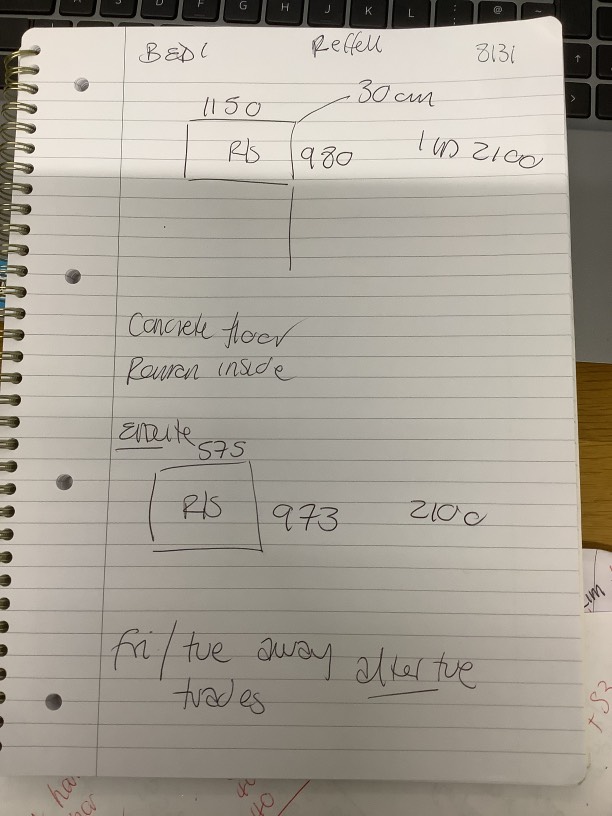 BED 1 Reffell 8131
1150 30cm
R/S 980 2100
Concrete floor
inside
ensuite
575
R/S 973 2100
fri/tue away after tue
trades